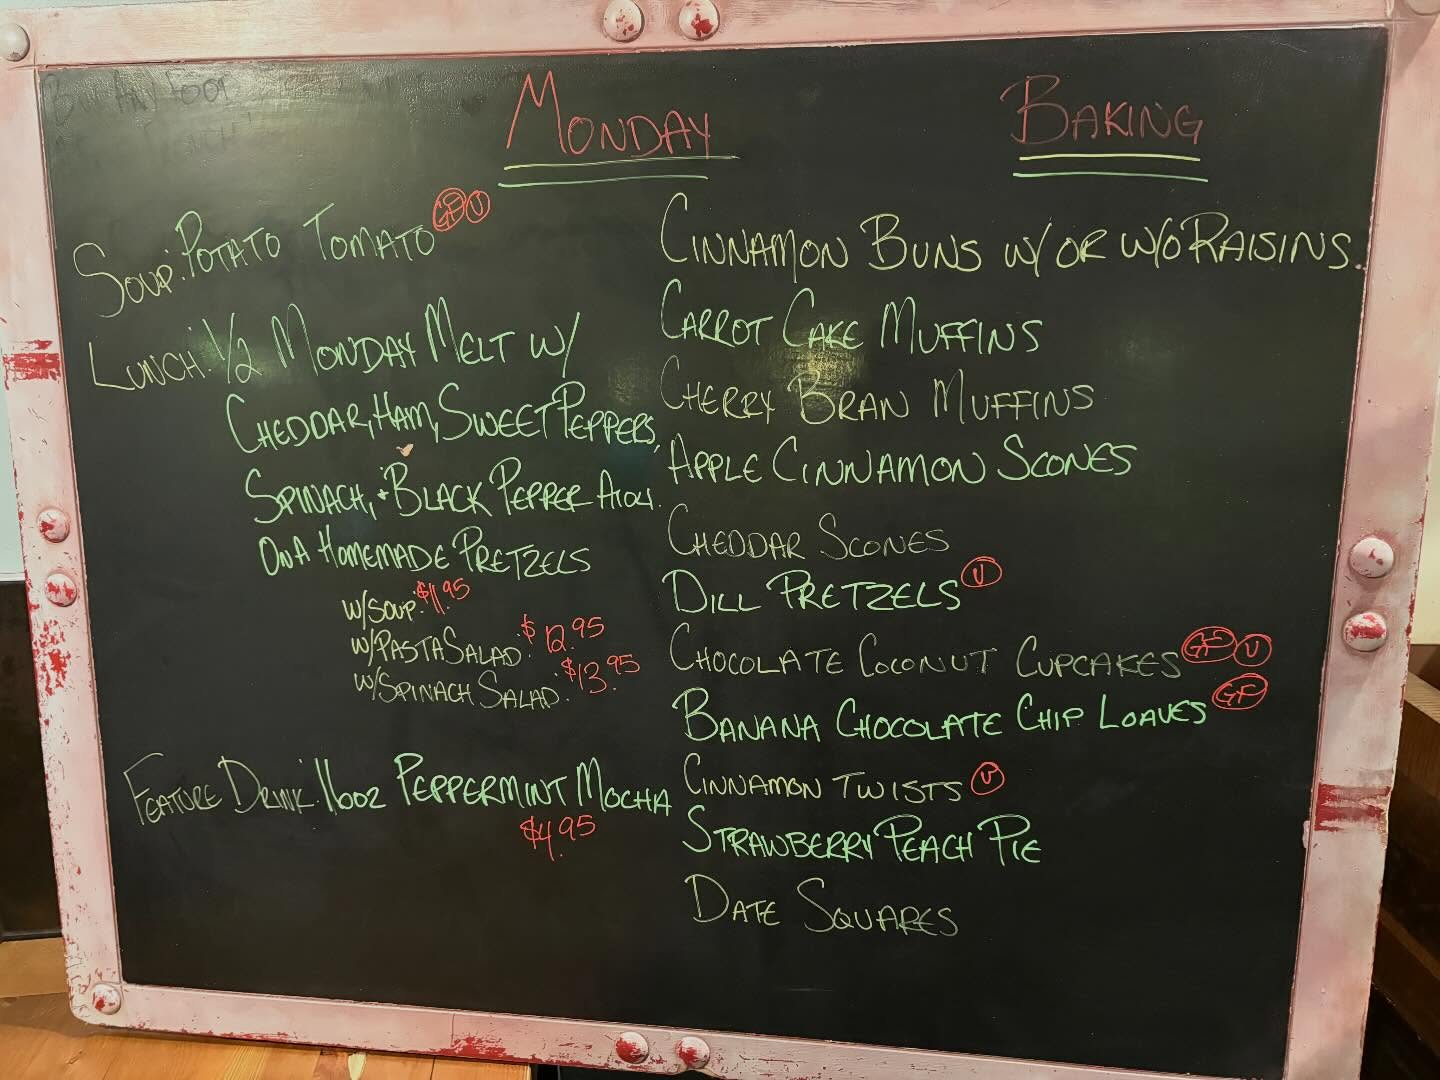 Monday
Soup: Potato Tomato GF V
Lunch: 1/2 Monday Melt w/
Cheddar, Ham, Sweet Peppers,
Spinach, + Black Pepper Aioli.
On A Homemade Pretzels
w/Soup: $11.95
w/Pasta Salad: $12.95
w/Spinach Salad: $13.95
Feature Drink: 16oz Peppermint Mocha
$4.95
Baking
Cinnamon Buns w/ or w/o Raisins
Carrot Cake Muffins
Cherry Bran Muffins
Apple Cinnamon Scones
Cheddar Scones
Dill Pretzels V
Chocolate Coconut Cupcakes GF V
Banana Chocolate Chip Loaves GF
Cinnamon Twists V
Strawberry Peach Pie
Date Squares